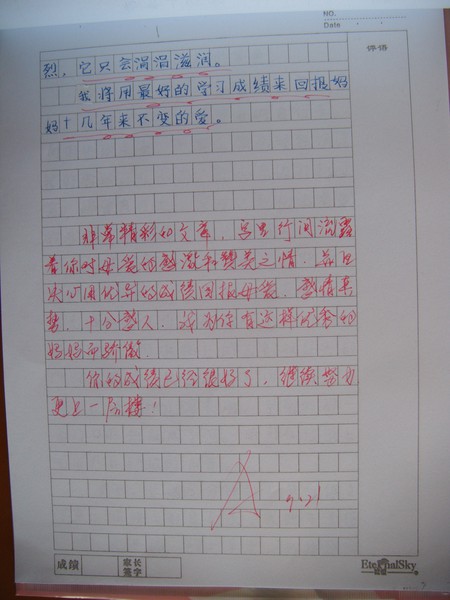 NO.
Date
评语
烈，它只会涓涓滋润。
我将用最好的学习成绩来回报妈
妈十几年来不变的爱。
非常精彩的文章，字里行间流露
着你对母亲的感激和赞美之情。并且
决心用优异的成绩回报母亲，感情真
挚，十分感人。我为你有这样优秀的
妈妈而骄傲.
你的成绩已经很好了，继续努力
更上一层楼！
A
9.21
成绩
家长
签字
EternalSky